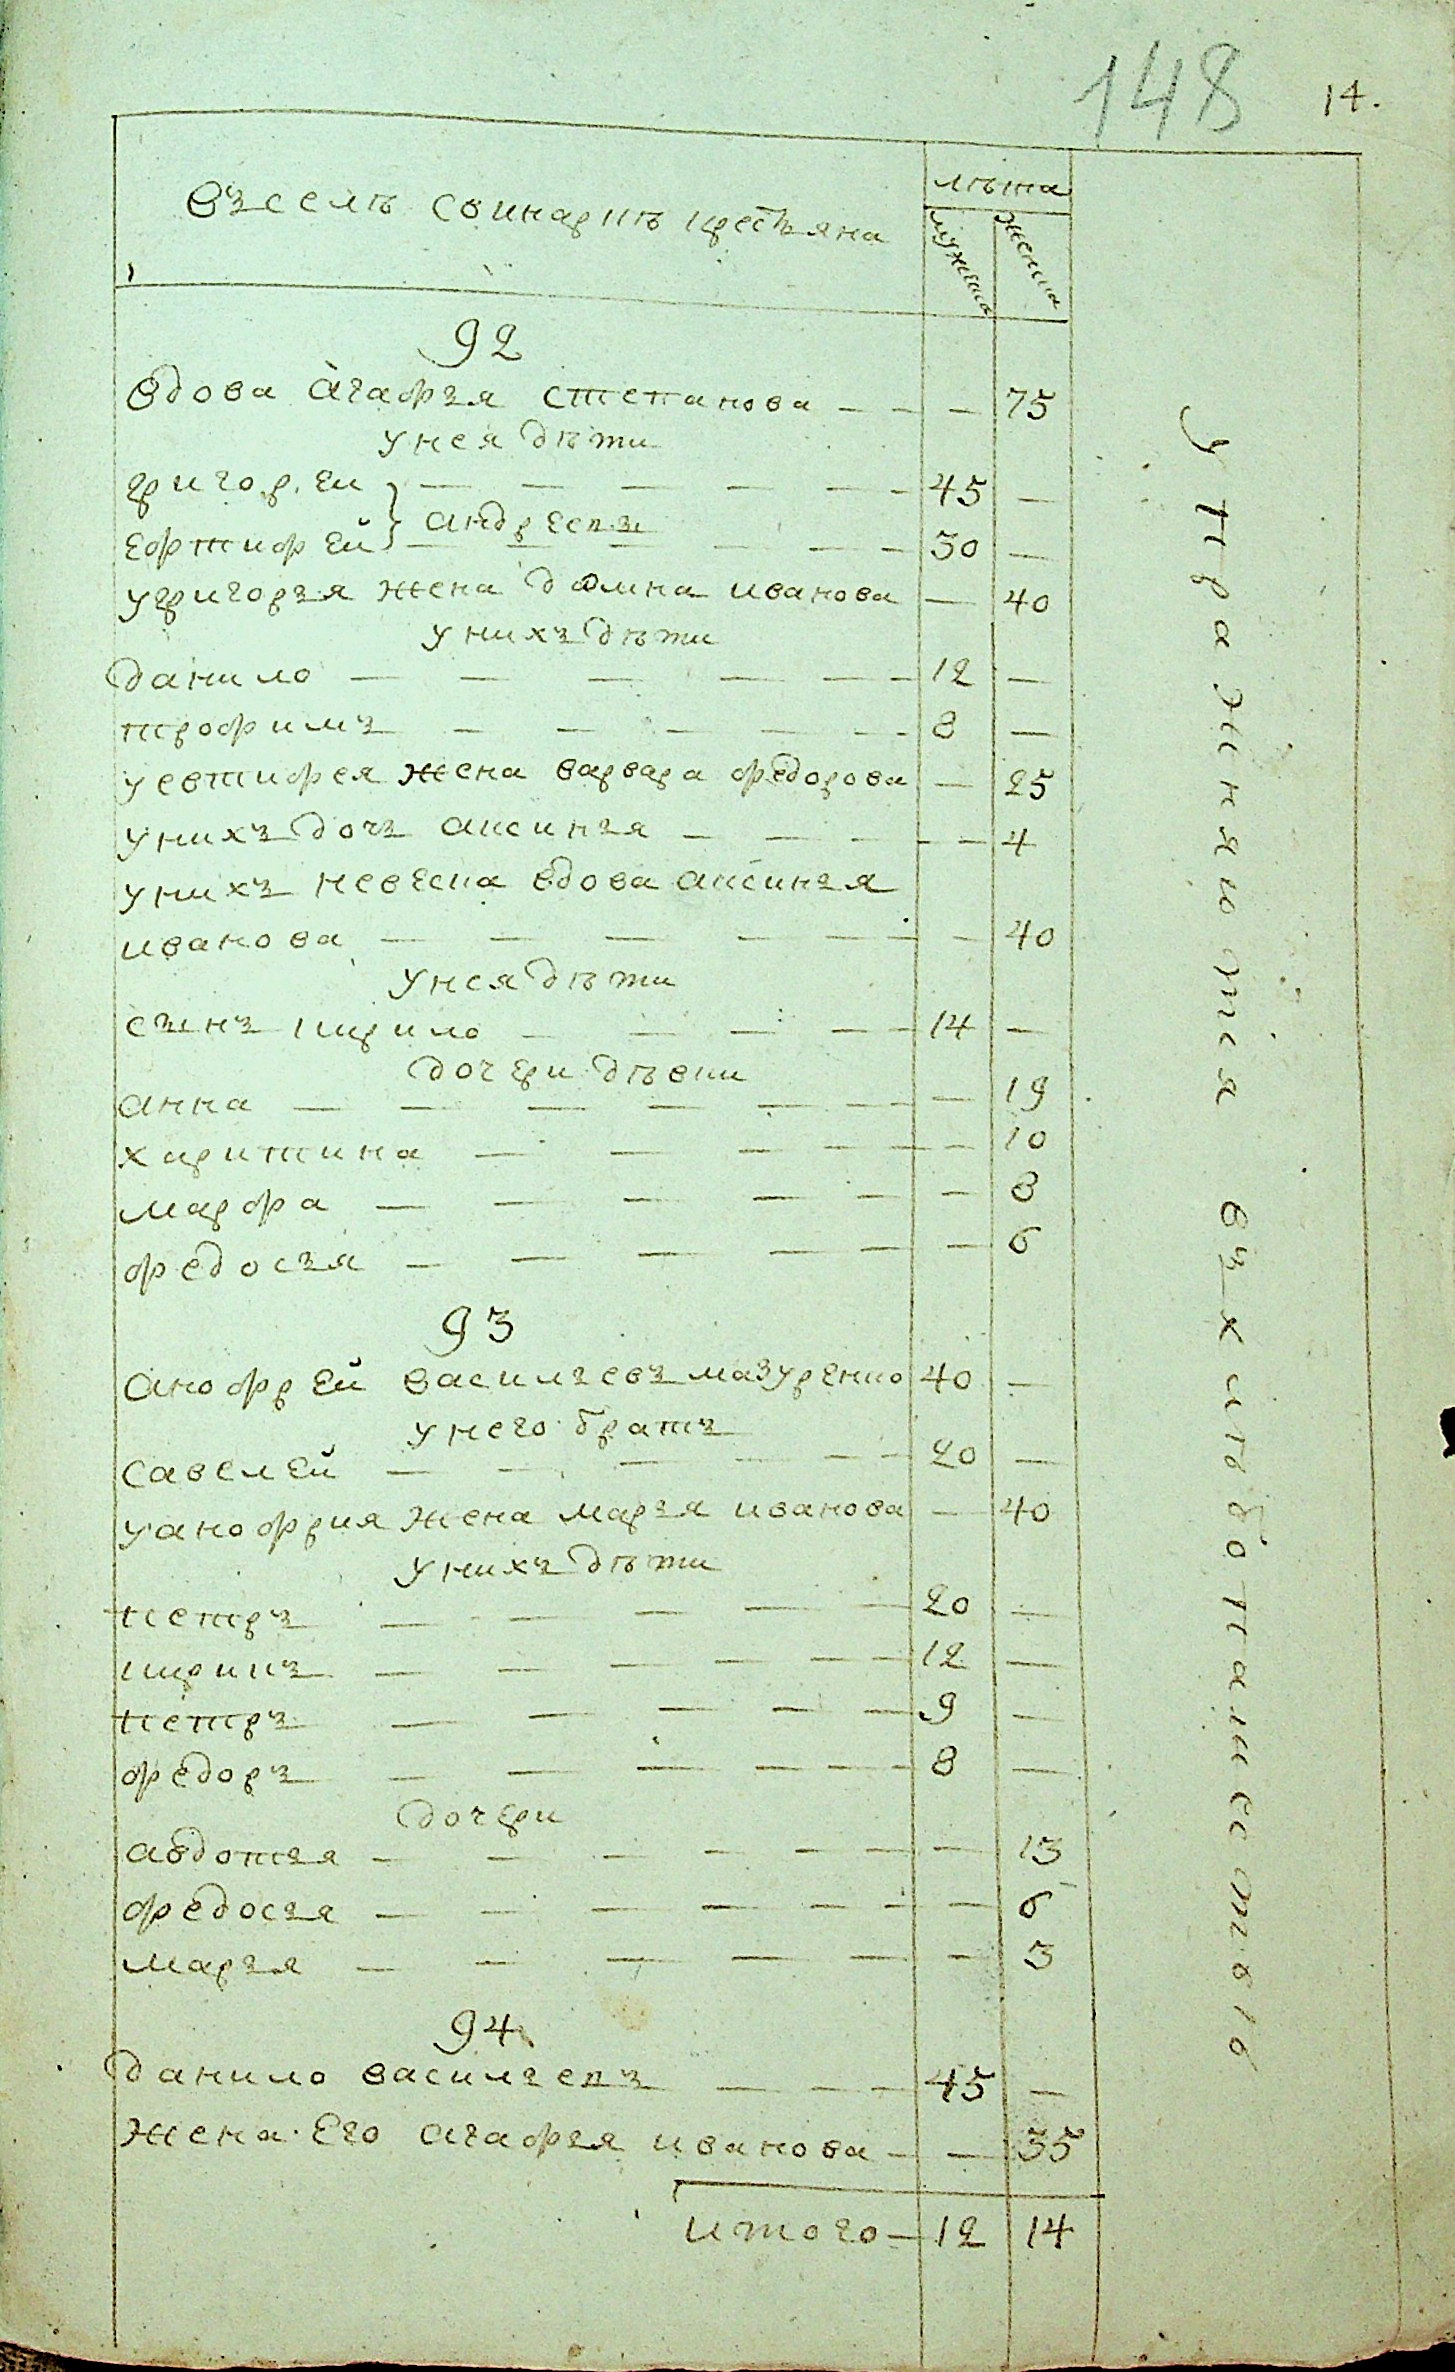 148
14.
Въ селѣ Свинаркѣ крестьяна
лѣта
мужеска
женска
92
вдова Агафья степанова — — — 75
У нея дѣти
григорѣй — — — — — 45 —
Ефтифѣй } андреевы — — — — — 30 —
у григорья жена домна иванова — 40
у нихъ дѣти
данило — — — — — — 12 —
трофимъ — — — — — — 8 —
у евтифея жена варвара федорова — 25
у нихъ дочь аксинья — — — — — 4
у нихъ невеска вдова аксинья
иванова — — — — — — — 40
У нея дѣти
сынъ кирило — — — — — 14 —
дочери дѣвки
анна — — — — — — — 19
харитина — — — — — — 10
марфа — — — — — — 8
федосья — — — — — — 6
93
анофрѣй васильевъ мазуренко 40 —
у него братъ
савелѣй — — — — — — 20 —
у анофрия жена марья иванова — 40
у нихъ дѣти
петръ — — — — — 20 —
кирикъ — — — — — 12 —
петръ — — — — — 9 —
федоръ — — — — — — 8 —
дочери
авдотья — — — — — — — 13
федосья — — — — — — — 6
марья — — — — — — 3
94
данило васильевъ — — — 45 —
жена Его агафья иванова — — 35
итого — 12 14
упражняютъся въ хлѣбопашествѣ